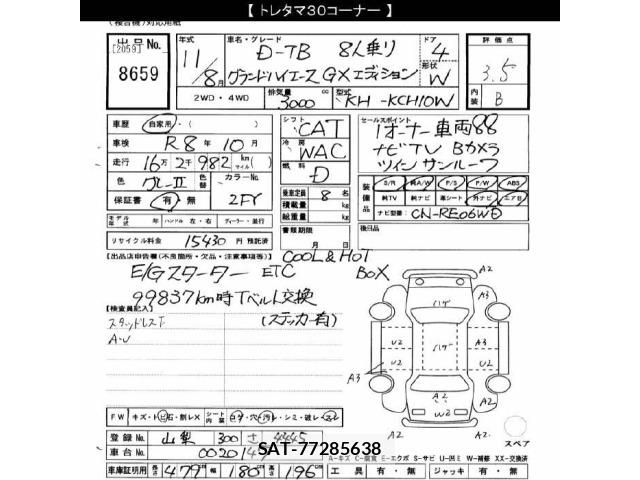 【 トレタマ30コーナー 】
(複合機)対応用紙
出品No. [2059] 8659
年式 11/8月
車名・グレード D-TB 8人乗り
グランドハイエース GXエディション
ドア 4
形状 W
評価点 3.5
内装 B
2WD・4WD
排気量 3000 cc
型式 KH-KCH10W
車歴 自家用・( )
車検 R8年 10月
走行 16万2千982 km マイル ( )
色 グレーII 色替 カラーNo. 2FY
保証書 有・無
モデル年式 年 ハンドル 左・右 ディーラー・並行
リサイクル料金 15430 円 預託済
シフト CAT
冷房 WAC
燃料 D
乗車定員 8 名
積載量 kg
総重量 kg
書類期限 月 日
セールスポイント
1オーナー車両88
ナビTV Bカメラ
ツインサンルーフ
装備品 S/R 純A/W P/S P/W ABS
純TV 純ナビ 革シート 外ナビ エアB
ナビ型番( CN-RE06WD )
後日品
【出品店申告欄(不良箇所・欠品・注意事項等)】
COOL&HOT BOX
E/Gスターター ETC
99837km時Tベルト交換
(ステッカー有)
【検査員記入】
スタッドレスT
A-W
A2
A3
ハゲ
A2
U2
U2
ハゲ
U2
U2
A3
A3
A2
A2
W2
A2
A2
スペア
FW キズ・トビ石・削レX シート内装 コゲ・穴・汚レ・シミ・破レ・スレ
登録No. 山梨 300 さ 4445
車台No. 0020147
SAT-77285638
A-キズ C-腐食 E-エクボ S-サビ U-凹ミ W-補修 XX-交換済
車庫証明用 長さ 479 幅 180 高さ 196
工具 有・無 ジャッキ 有・無